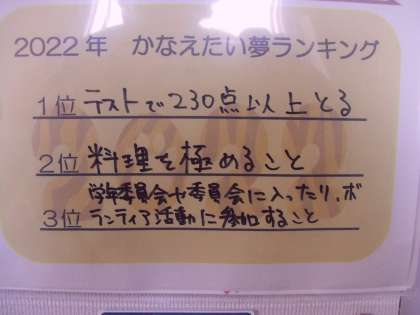 2022年 かなえたい夢ランキング
1位 テストで230点以上とる
2位 料理を極めること
学年委員会や委員会に入ったり、ボ
3位 ランティア活動に参加すること